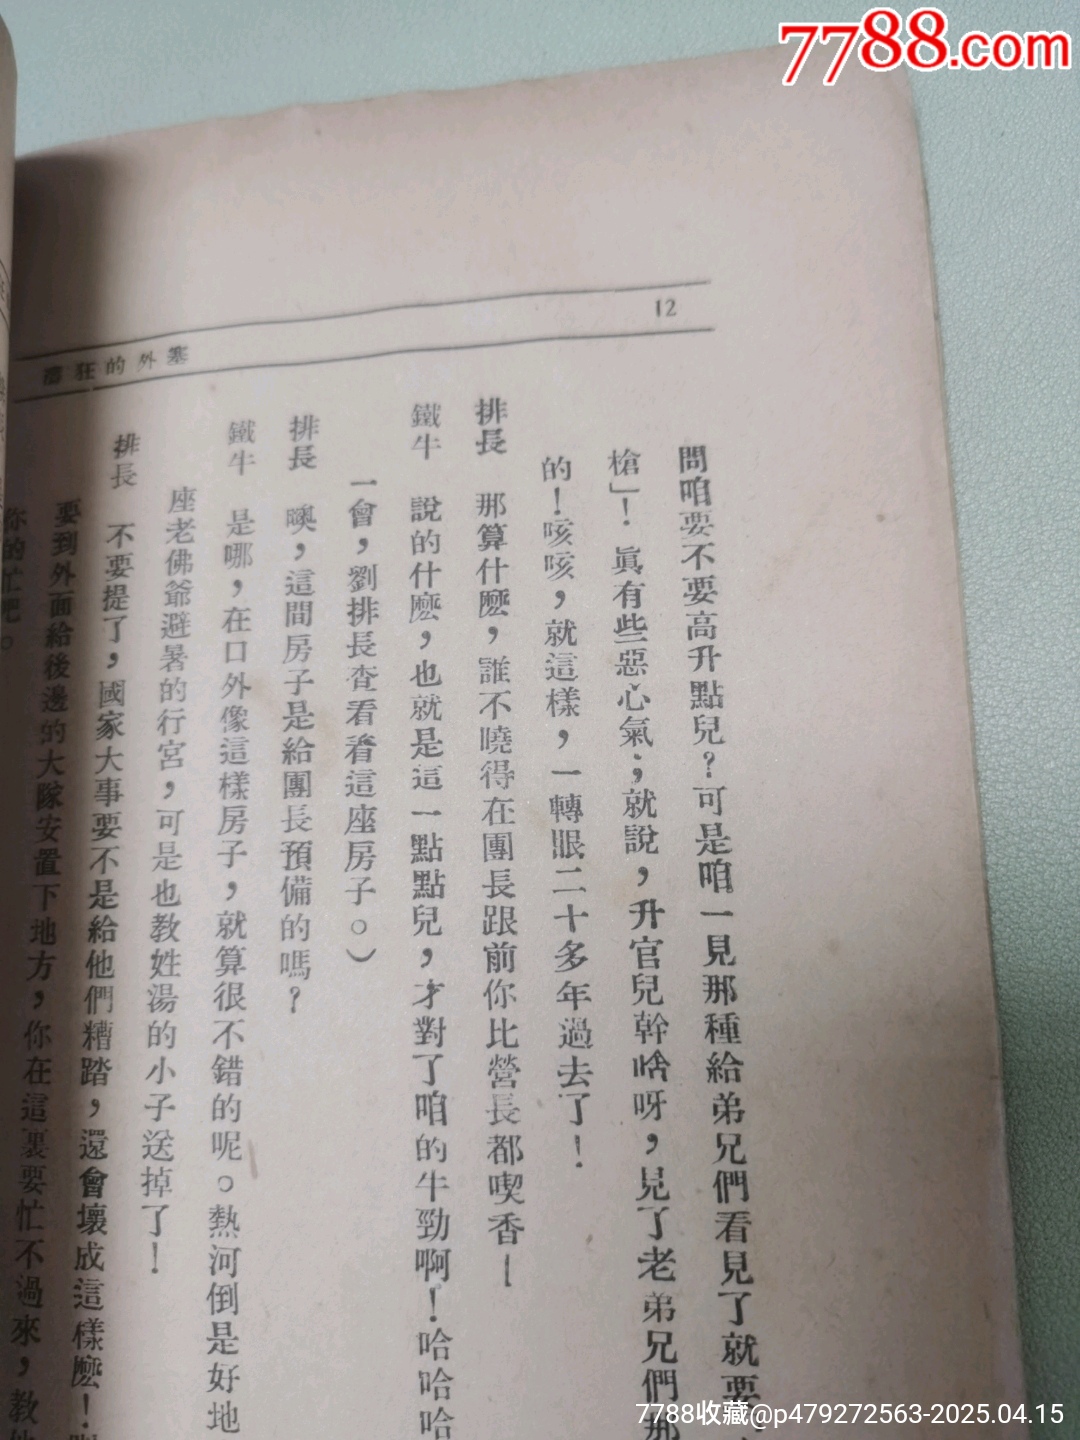 7788.com
12
塞外的狂濤
問咱要不要高升點兒？可是咱一見那種給弟兄們看見了就要
槍」！眞有些惡心氣；就說，升官兒幹啥呀，見了老弟兄們那
的！咳咳，就這樣，一轉眼二十多年過去了！
排長 那算什麽，誰不曉得在團長跟前你比營長都喫香—
鐵牛 說的什麽，也就是這一點點兒，才對了咱的牛勁啊！哈哈哈
一會，劉排長查看着這座房子。）
排長 噢，這間房子是給團長預備的嗎？
鐵牛 是哪，在口外像這樣房子，就算很不錯的呢。熱河倒是好地
座老佛爺避暑的行宮，可是也教姓湯的小子送掉了！
排長 不要提了，國家大事要不是給他們糟踏，還會壞成這樣麽！
要到外面給後邊的大隊安置下地方，你在這裏要忙不過來，教
你的忙吧。
7788收藏@p479272563-2025.04.15